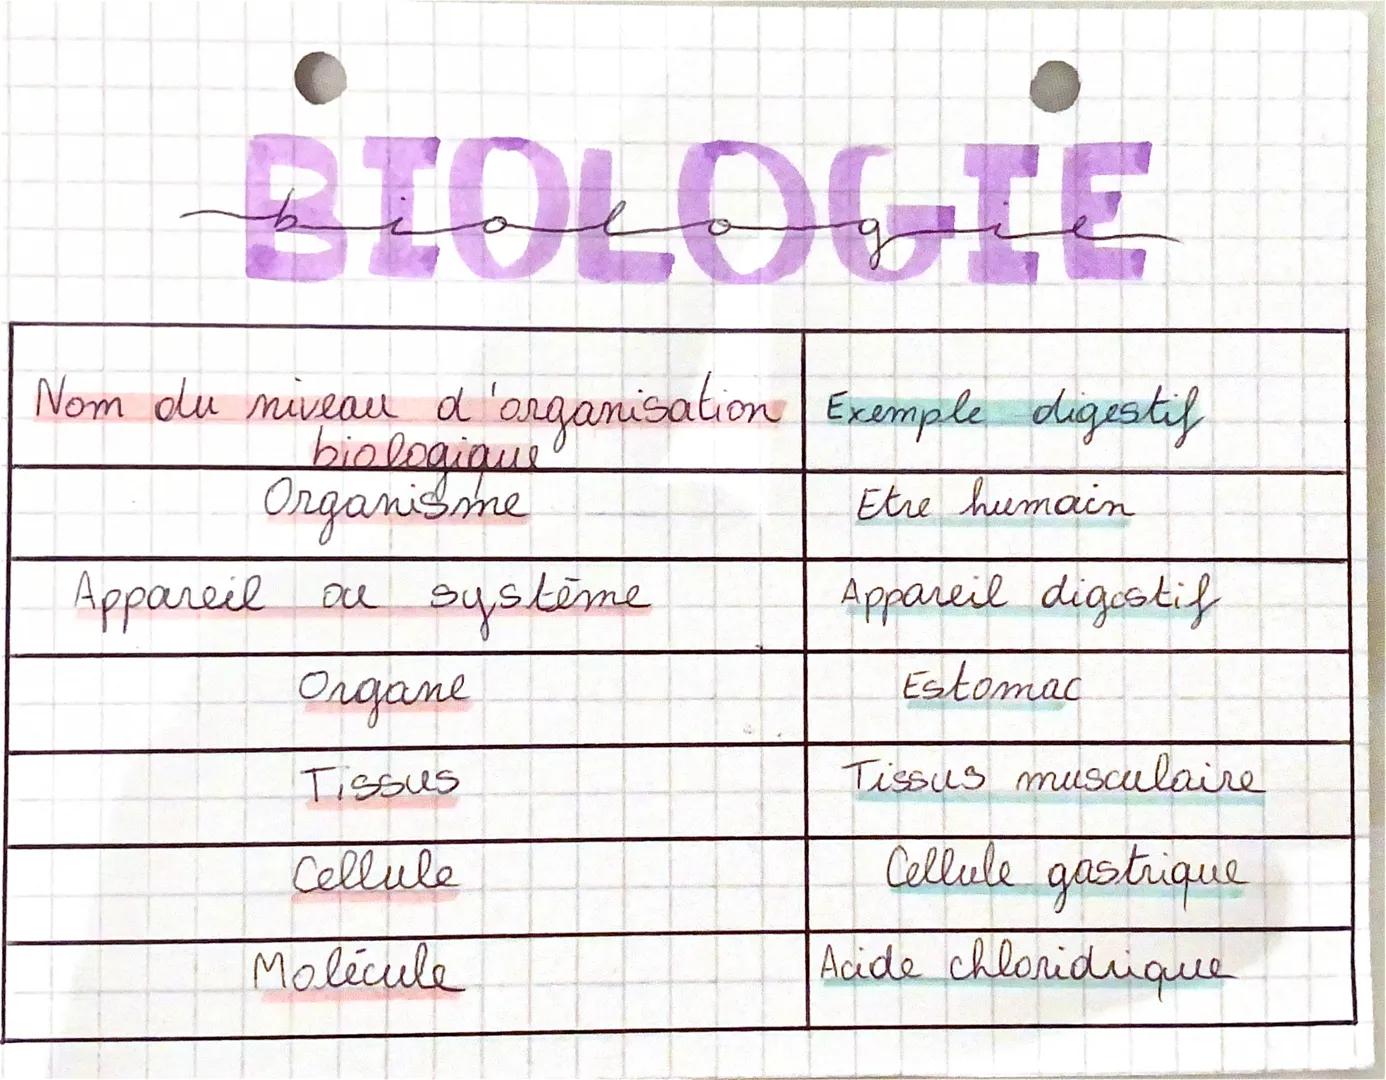 BIOLOGIE
biologie
Nom du niveau d'organisation
biologique
Exemple digestif
Organisme
Etre humain
Appareil ou système
Appareil digestif
Organe
Estomac
Tissus
Tissus musculaire
Cellule
Cellule gastrique
Molécule
Acide chloridrique